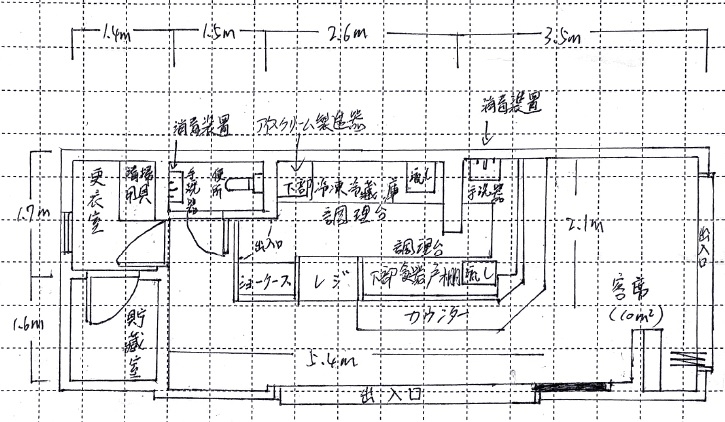 1.4m 1.5m 2.6m 3.5m
消毒装置
アイスクリーム製造器
消毒装置
更衣室
掃除用具
手洗器
便所
下部冷凍冷蔵庫
流し
調理台
手洗器
1.7m
出入口
調理台
2.1m
出入口
ショーケース
レジ
下部食器戸棚
流し
客席
(10m²)
カウンター
1.6m
貯蔵室
5.4m
出入口